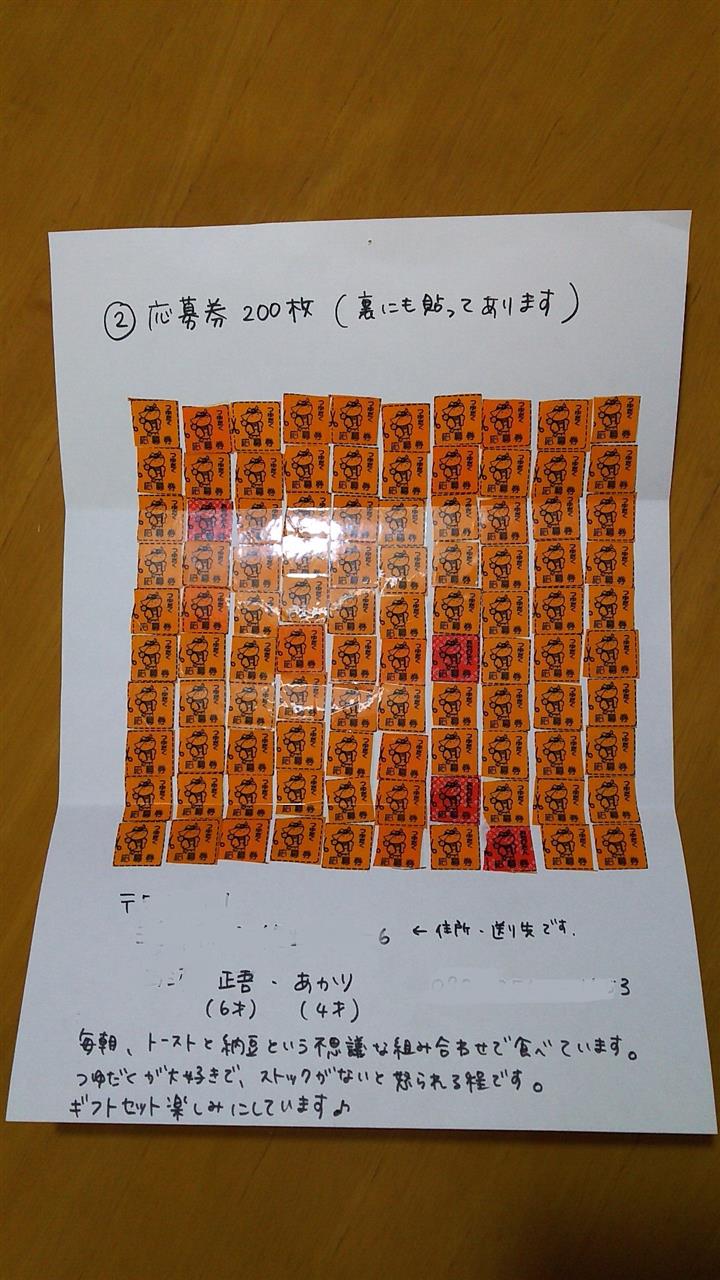 ② 応募券 200枚 (裏にも貼ってあります)
つゆだく 応募券
〒
6 ←住所・送り先です.
正吾・あかり
(6才) (4才)
3
毎朝、トーストと納豆という不思議な組み合わせで食べています。
つゆだくが大好きで、ストックがないと怒られる程です。
ギフトセット楽しみにしています♪